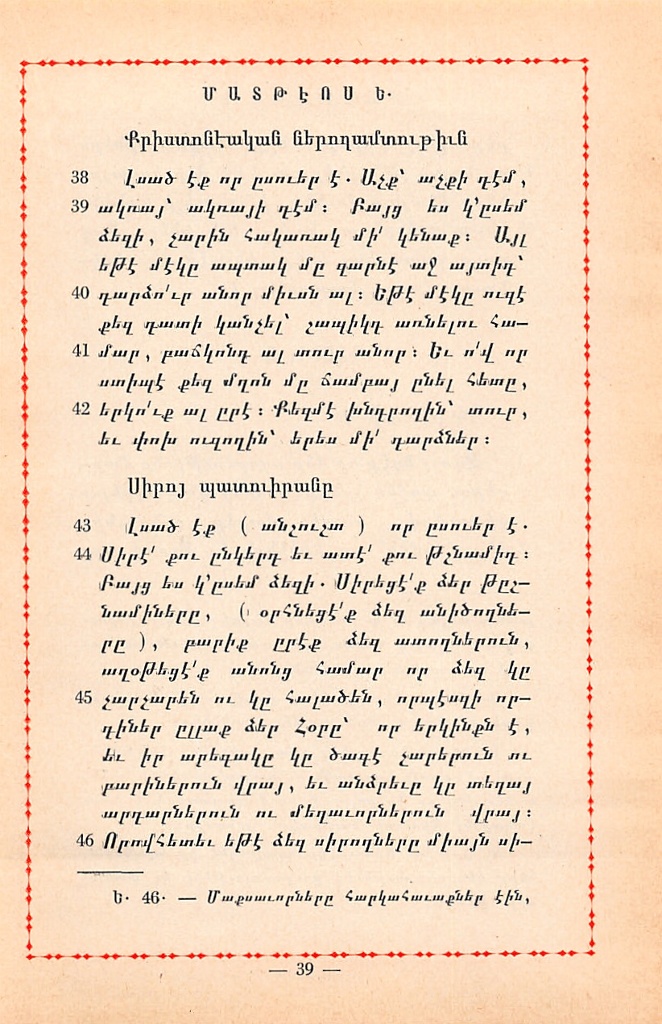 ՄԱՏԹԷՈՍ Ե.
Քրիստոնէական ներողամտութիւն
38 Լսած էք որ ըսուեր է. Աչք՝ աչքի դէմ,
39 ակռայ՝ ակռայի դէմ։ Բայց ես կ՚ըսեմ
ձեզի, չարին հակառակ մի՛ կենաք։ Այլ
եթէ մէկը ապտակ մը զարնէ աջ այտիդ՝
40 դարձո՛ւր անոր միւսն ալ։ Եթէ մէկը ուզէ
քեզ դատի կանչել՝ շապիկդ առնելու հա—
41 մար, բաճկոնդ ալ տուր անոր։ Եւ ո՛վ որ
ստիպէ քեզ մղոն մը ճամբայ ընել հետը,
42 երկո՛ւք ալ ըրէ։ Քեզմէ խնդրողին՝ տուր,
եւ փոխ ուզողին՝ երես մի՛ դարձներ։
Սիրոյ պատուիրանը
43 Լսած էք ( անշուշտ ) որ ըսուեր է.
44 Սիրէ՛ քու ընկերդ եւ ատէ՛ քու թշնամիդ։
Բայց ես կ՚ըսեմ ձեզի. Սիրեցէ՛ք ձեր թըշ—
նամիները, ( օրհնեցէ՛ք ձեզ անիծողնե—
րը ), բարիք ըրէք ձեզ ատողներուն,
աղօթեցէ՛ք անոնց համար որ ձեզ կը
45 չարչարեն ու կը հալածեն, որպէսզի որ—
դիներ ըլլաք ձեր Հօրը՝ որ երկինքն է,
եւ իր արեգակը կը ծագէ չարերուն ու
բարիներուն վրայ, եւ անձրեւը կը տեղայ
արդարներուն ու մեղաւորներուն վրայ։
46 Որովհետեւ եթէ ձեզ սիրողները միայն սի—
Ե. 46. — Մաքսաւորները հարկահաւաքներ էին,
— 39 —